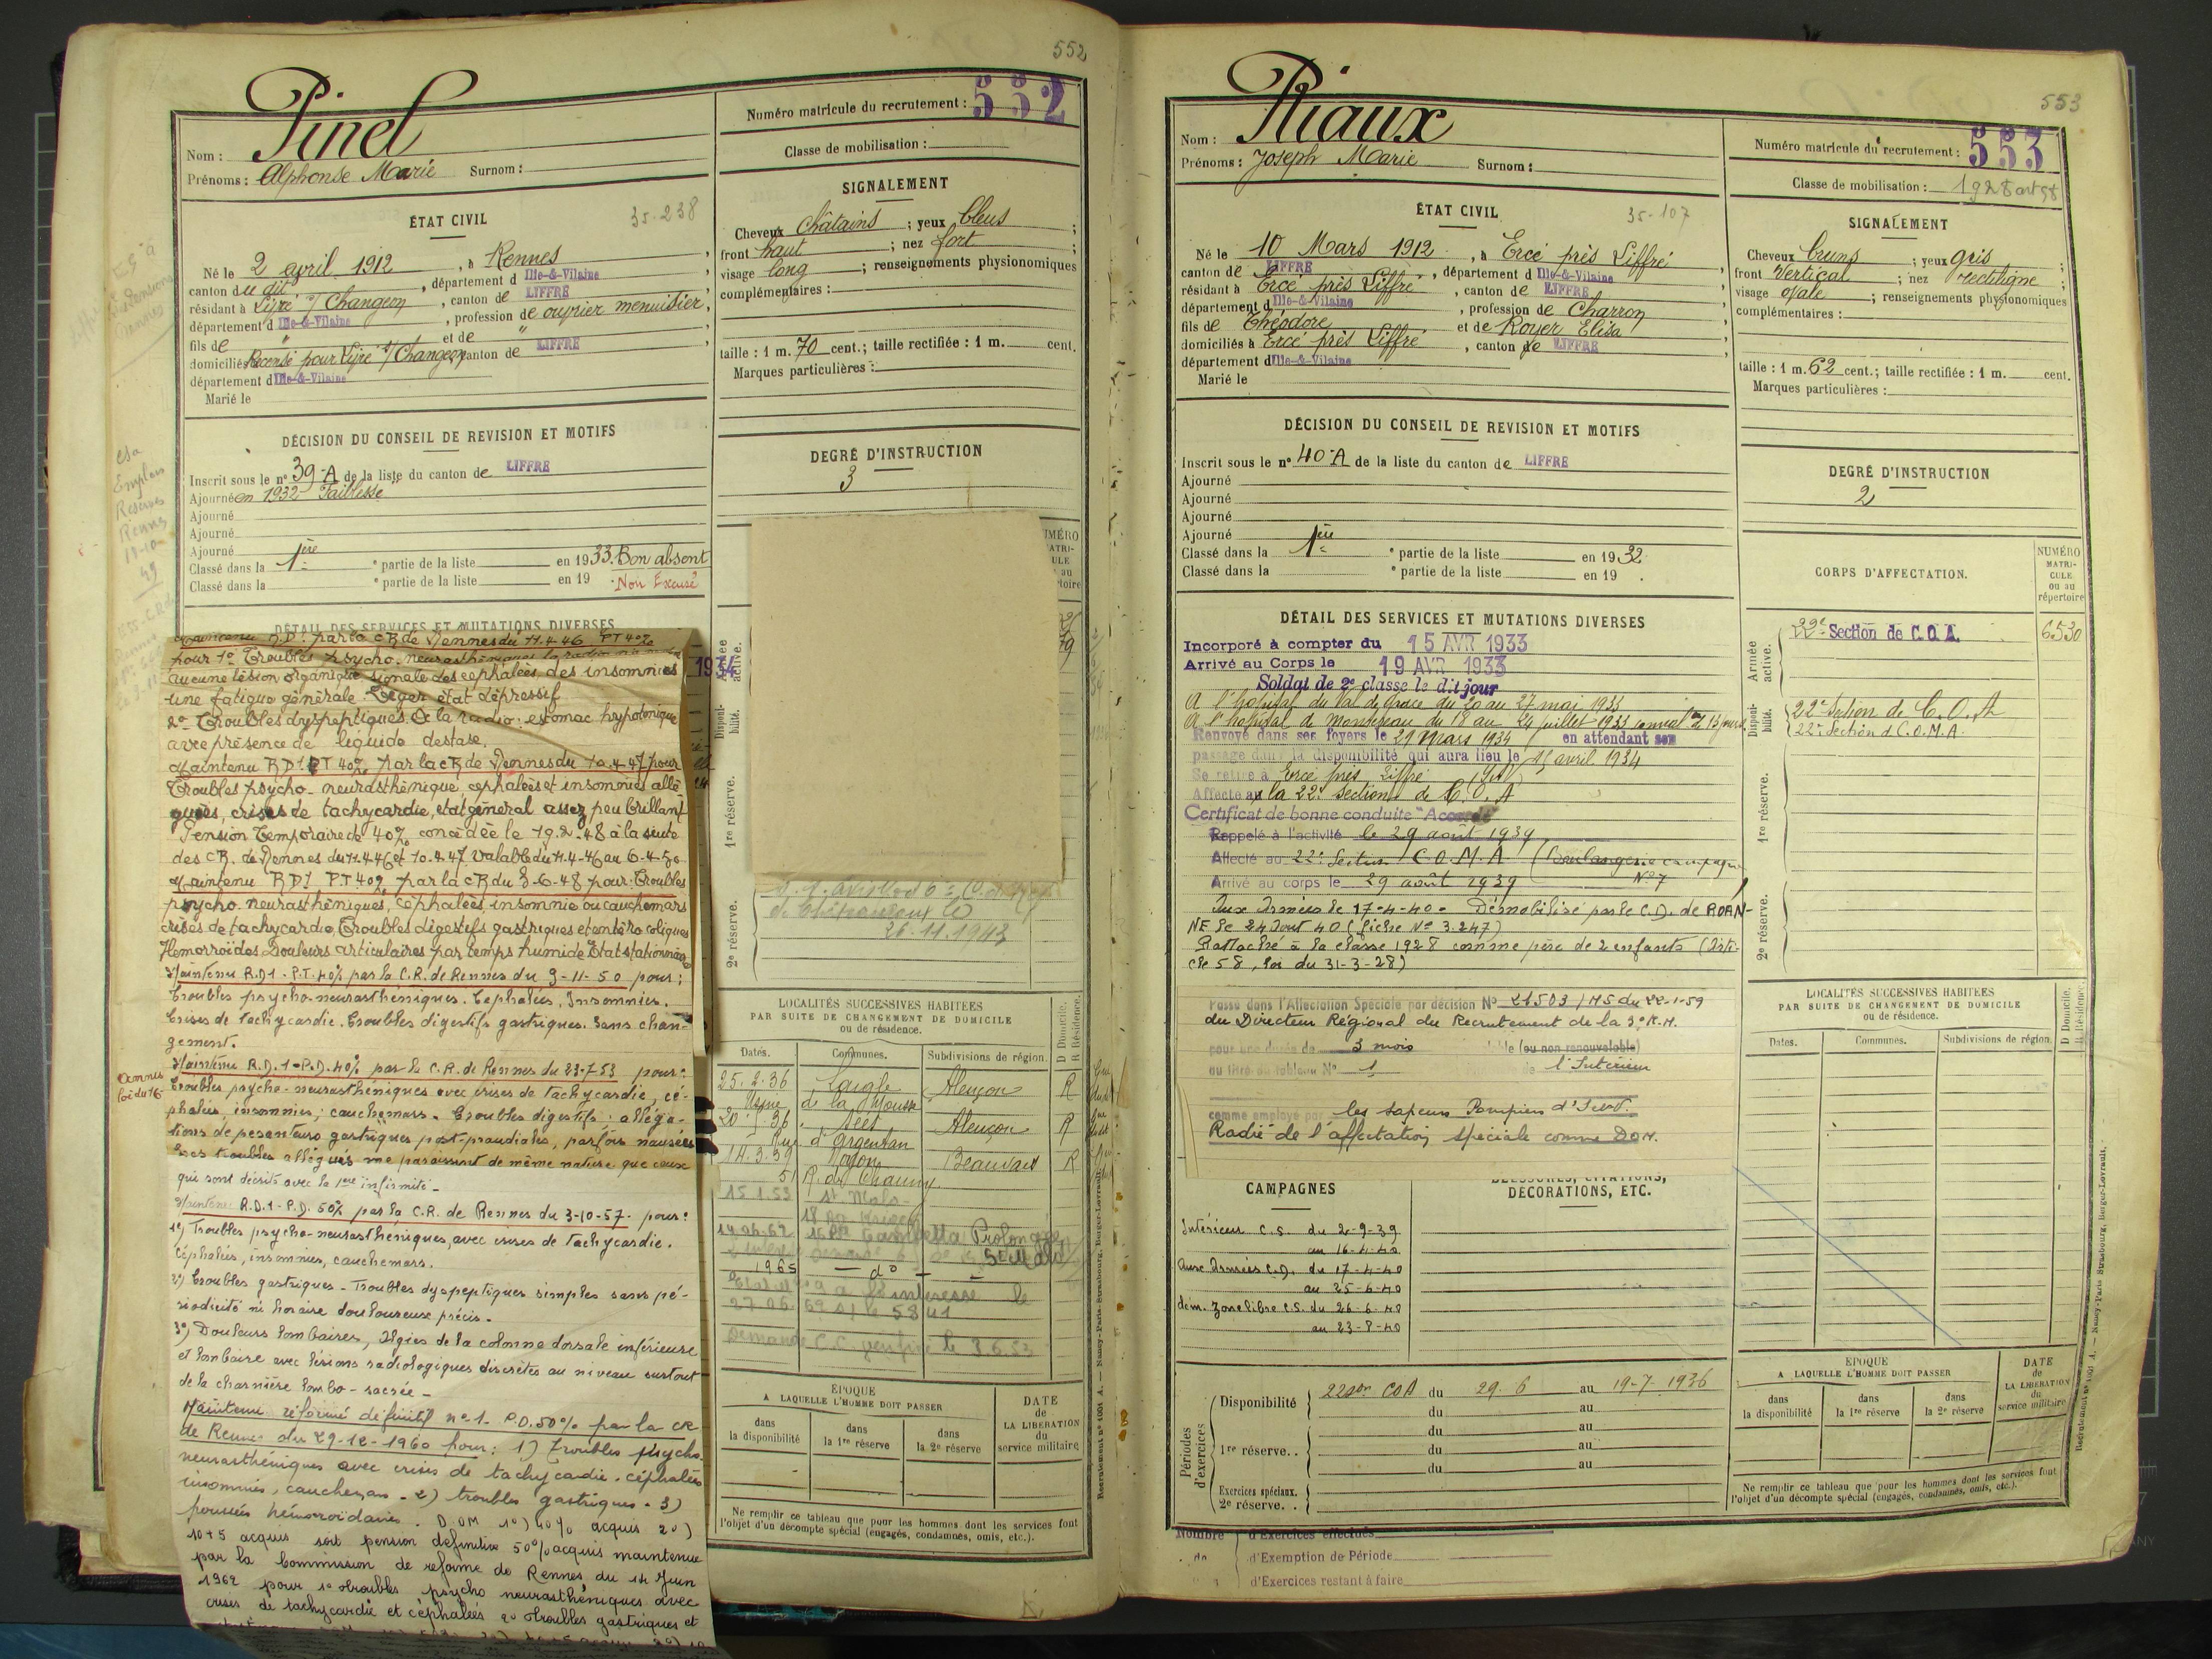 552
Pinel
Nom :
Prénoms : Alphonse Marie Surnom :
Numéro matricule du recrutement : 552
Classe de mobilisation :
ÉTAT CIVIL
35-238
Né le 2 avril 1912, à Rennes,
canton du dit, département d Ille-&-Vilaine,
résidant à Liffré Changeon, canton de LIFFRE,
département d Ille-&-Vilaine, profession de ouvrier menuisier,
fils de " et de "
domiciliés Recensé pour Changeon canton de LIFFRE
département d Ille-&-Vilaine
Marié le
SIGNALEMENT
Cheveux châtains ; yeux bleus ;
front haut ; nez fort ;
visage long ; renseignements physionomiques
complémentaires :
taille : 1 m. 70 cent.; taille rectifiée : 1 m. cent.
Marques particulières :
DÉCISION DU CONSEIL DE REVISION ET MOTIFS
Inscrit sous le nº 39-A de la liste du canton de LIFFRE
Ajourné en 1932 Faiblesse
Ajourné
Ajourné
Ajourné
Classé dans la 1ère partie de la liste en 1933. Bon absent
Classé dans la partie de la liste en 19 . Non Excusé
DEGRÉ D'INSTRUCTION
3
DÉTAIL DES SERVICES ET MUTATIONS DIVERSES
Maintenu R.D.1 par la CR de Rennes du 11.4.46 PT 40%
pour 1º Troubles psycho-neurasthéniques
aucune lésion organique signale des céphalées, des insomnies
une fatigue générale Léger état dépressif
2º Troubles dyspeptiques. A la radio : estomac hypotonique
avec présence de liquide de stase.
Maintenu RD1. PT 40% par la CR de Rennes du 10.4.47 pour
Troubles psycho-neurasthénique, céphalées et insomnies allé
guées, crises de tachycardie, état général assez peu brillant
Pension temporaire de 40% concédée le 19.2.48 à la suite
des CR. de Rennes du 11.4.46 et 10.4.47 valable du 11.4.46 au 6.4.50
Maintenu RD1 PT 40% par la CR du 3-6-48 pour : Troubles
psycho-neurasthéniques, céphalées, insomnie ou cauchemars
crises de tachycardie, Troubles digestifs gastriques et entéro coliques
Hémorroïdes Douleurs articulaires par temps humide Etat stationnaire
Maintenu R.D1 - P.T. 40% par la C.R. de Rennes du 9-11-50 pour :
Troubles psycho-neurasthéniques. Céphalées, Insomnies.
Crises de tachycardie. Troubles digestifs gastriques. Sans chan-
gement.
Maintenu R.D.1 - P.D. 40% par la C.R. de Rennes du 23-7-53 pour :
Troubles psycho-neurasthéniques avec crises de tachycardie, cé-
phalées, insomnies, cauchemars. Troubles digestifs : alléga-
tions de pesanteurs gastriques post-prandiales, parfois nausées
Ces troubles allégués me paraissent de même nature que ceux
qui sont décrits avec la 1ère infirmité -
Maintenu R.D.1 - P.D. 50% par la C.R. de Rennes du 3-10-57 - pour :
1º) Troubles psycho-neurasthéniques, avec crises de tachycardie.
Céphalées, insomnies, cauchemars.
2º) Troubles gastriques - Troubles dyspeptiques simples sans pé-
riodicité ni horaire douloureuse précis -
3º) Douleurs lombaires, Algies de la colonne dorsale inférieure
et lombaire avec lésions radiologiques discrètes au niveau surtout
de la charnière lombo-sacrée -
Maintenu réformé définitif nº 1 - P.D. 50% par la CR
de Rennes du 29-12-1960 pour : 1) troubles psycho
neurasthéniques avec crises de tachycardie. céphalées
insomnies, cauchemars - 2) troubles gastriques - 3)
poussées hémorroïdaires. D.OM 1º) 40% acquis 2º)
10+5 acquis soit pension définitive 50% acquis maintenue
par la Commission de réforme de Rennes du 14 Juin
1962 pour 1º troubles psycho neurasthéniques avec
crises de tachycardie et céphalées 2º troubles gastriques et
1934
Armée active.
Disponibilité.
1re réserve.
2e réserve.
26.11.1943
LOCALITÉS SUCCESSIVES HABITÉES
PAR SUITE DE CHANGEMENT DE DOMICILE
ou de résidence.
D Domicile.
R Résidence.
Dates. Communes. Subdivisions de région.
25.2.36 Laigle Alençon R
Usine de la Mousse
20 36. Sées Alençon R
Rue d'Argentan
14.3.39 Noyon Beauvais R
51 R. de Chauny
15.1.53 St Malo
1965 — dº —
Demande C.C.
ÉPOQUE
A LAQUELLE L'HOMME DOIT PASSER
DATE DE LA LIBÉRATION du service militaire
dans la disponibilité
dans la 1re réserve
dans la 2e réserve
Ne remplir ce tableau que pour les hommes dont les services font
l'objet d'un décompte spécial (engagés, condamnés, omis, etc.).
553
Riaux
Nom :
Prénoms : Joseph Marie Surnom :
Numéro matricule du recrutement : 553
Classe de mobilisation : 1928 art 58
ÉTAT CIVIL
35-107
Né le 10 Mars 1912, à Ercé près Liffré,
canton de LIFFRE, département d Ille-&-Vilaine,
résidant à Ercé près Liffré, canton de LIFFRE,
département d Ille-&-Vilaine, profession de Charron,
fils de Théodore et de Royer Elisa
domiciliés à Ercé près Liffré, canton de LIFFRE,
département d Ille-&-Vilaine
Marié le
SIGNALEMENT
Cheveux bruns ; yeux gris ;
front vertical ; nez rectiligne ;
visage ovale ; renseignements physionomiques
complémentaires :
taille : 1 m. 62 cent.; taille rectifiée : 1 m. cent.
Marques particulières :
DÉCISION DU CONSEIL DE REVISION ET MOTIFS
Inscrit sous le nº 40-A de la liste du canton de LIFFRE
Ajourné
Ajourné
Ajourné
Ajourné
Classé dans la 1ère partie de la liste en 1932.
Classé dans la partie de la liste en 19 .
DEGRÉ D'INSTRUCTION
2
CORPS D'AFFECTATION.
NUMÉRO MATRICULE ou au répertoire
Armée active.
22e Section de C.O.A. 6530
Disponibilité.
22e Section de C.O.A
22e Section d C.O.M.A.
1re réserve.
2e réserve.
DÉTAIL DES SERVICES ET MUTATIONS DIVERSES
Incorporé à compter du 15 AVR 1933
Arrivé au Corps le 19 AVR 1933
Soldat de 2e classe le dit jour
A l'hôpital du Val de Grâce du 20 au 27 mai 1933
A l'hôpital de Montereau du 18 au 24 juillet 1933 conval de 15 jours
Renvoyé dans ses foyers le 29 Mars 1934 en attendant son
passage dans la disponibilité qui aura lieu le 15 avril 1934
Se retire à Ercé près Liffré (I&V)
Affecté à la 22e Section de C.O.A
Certificat de bonne conduite "Accordé"
Rappelé à l'activité le 29 août 1939
Affecté au 22e Section C.O.M.A (Boulangerie campagne
Arrivé au corps le 29 août 1939 Nº 7
Aux Armées le 17-4-40. Démobilisé par le C.D. de ROAN-
NE le 24 Août 40 (fiche Nº 3.247)
Rattaché à la classe 1928 comme père de 2 enfants (Arti-
cle 58, loi du 31-3-28)
Passé dans l'Affectation Spéciale par décision Nº 21503/MS du 22-1-59
du Directeur Régional du Recrutement de la 3e R.M.
pour une durée de 3 mois (ou non renouvelable)
au titre du tableau Nº 1 de l'Intérieur
comme employé par les sapeurs Pompiers d'I-et-V.
Radié de l'affectation spéciale comme DOM.
CAMPAGNES
BLESSURES, CITATIONS, DÉCORATIONS, ETC.
Intérieur C.S. du 2-9-39
au 16-4-40
Aux Armées C.D. du 17-4-40
au 25-6-40
dém. Zone libre C.S. du 26-6-40
au 23-8-40
Périodes d'exercices
Disponibilité 22son COA du 29-6 au 19-7-1936
du au
1re réserve.. du au
du au
du au
Exercices spéciaux.
2e réserve. .
Nombre d'Exercices effectués
de d'Exemption de Période
d'Exercices restant à faire
LOCALITÉS SUCCESSIVES HABITÉES
PAR SUITE DE CHANGEMENT DE DOMICILE
ou de résidence.
D Domicile.
R Résidence.
Dates. Communes. Subdivisions de région.
ÉPOQUE
A LAQUELLE L'HOMME DOIT PASSER
DATE DE LA LIBÉRATION du service militaire
dans la disponibilité
dans la 1re réserve
dans la 2e réserve
Ne remplir ce tableau que pour les hommes dont les services font
l'objet d'un décompte spécial (engagés, condamnés, omis, etc.).